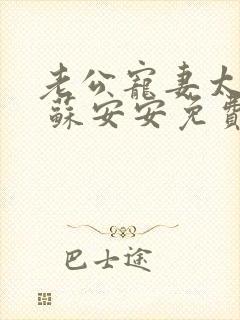 老公寵妻太
蘇安安免費
巴士途